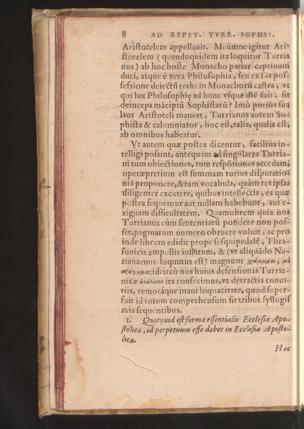 8 AD REPET. TVRR. SOPHIS.
Aristotelem appellauit. Meúmne igitur Ari-
stotelem (quandoquidem ita loquitur Turria
nus) ab hoc hoste Monacho patiar captiuum
duci, atque è vera Philosophia, seu ex sua pos-
sessione deiectū trahi in Monachorū castra, vt
qui lux Philosophiæ ad hunc vsque diē fuit, sit
deinceps mācipiū Sophistarū? Imò potiùs sua
laus Aristoteli maneat, Turrianus autem So-
phista & calumniator, hoc est, talis, qualis est,
ab omnibus habeatur.
Vt autem quæ postea dicentur, faciliùs in-
telligi possint, antequàm ad singulares Turria-
ni tum obiectiones, tum responsiones accedam,
operæpretium est summam totius disputatio-
nis proponere, & tam vocabula, quàm res ipsas
diligenter excutere, quibus intellectis, ea quæ
postea sequentur aut nullam habebunt, aut e-
xiguam difficultatem. Quamobrem quia nos
Turrianus cùm sententiarū pondere non pos-
set, paginarum numero obruere voluit, ac pro
inde librum edidit prope sesquipedalē, Thra-
sonicis ampullis inflatum, & (vt aliquādo Na-
zianzenus loquutus est) magnum
idcircò nos huius defensionis Turria-
nicæ ita confecimus, vt detractis conui-
tiis, remotáque inani loquacitate, quod super-
fuit id totum comprehensum sit tribus syllogis
mis sequentibus.
1. Quicquid est forma essentialis Ecclesiæ Apo-
stolicæ, id perpetuum esse debet in Ecclesia Aposto-
lica.
Hæc